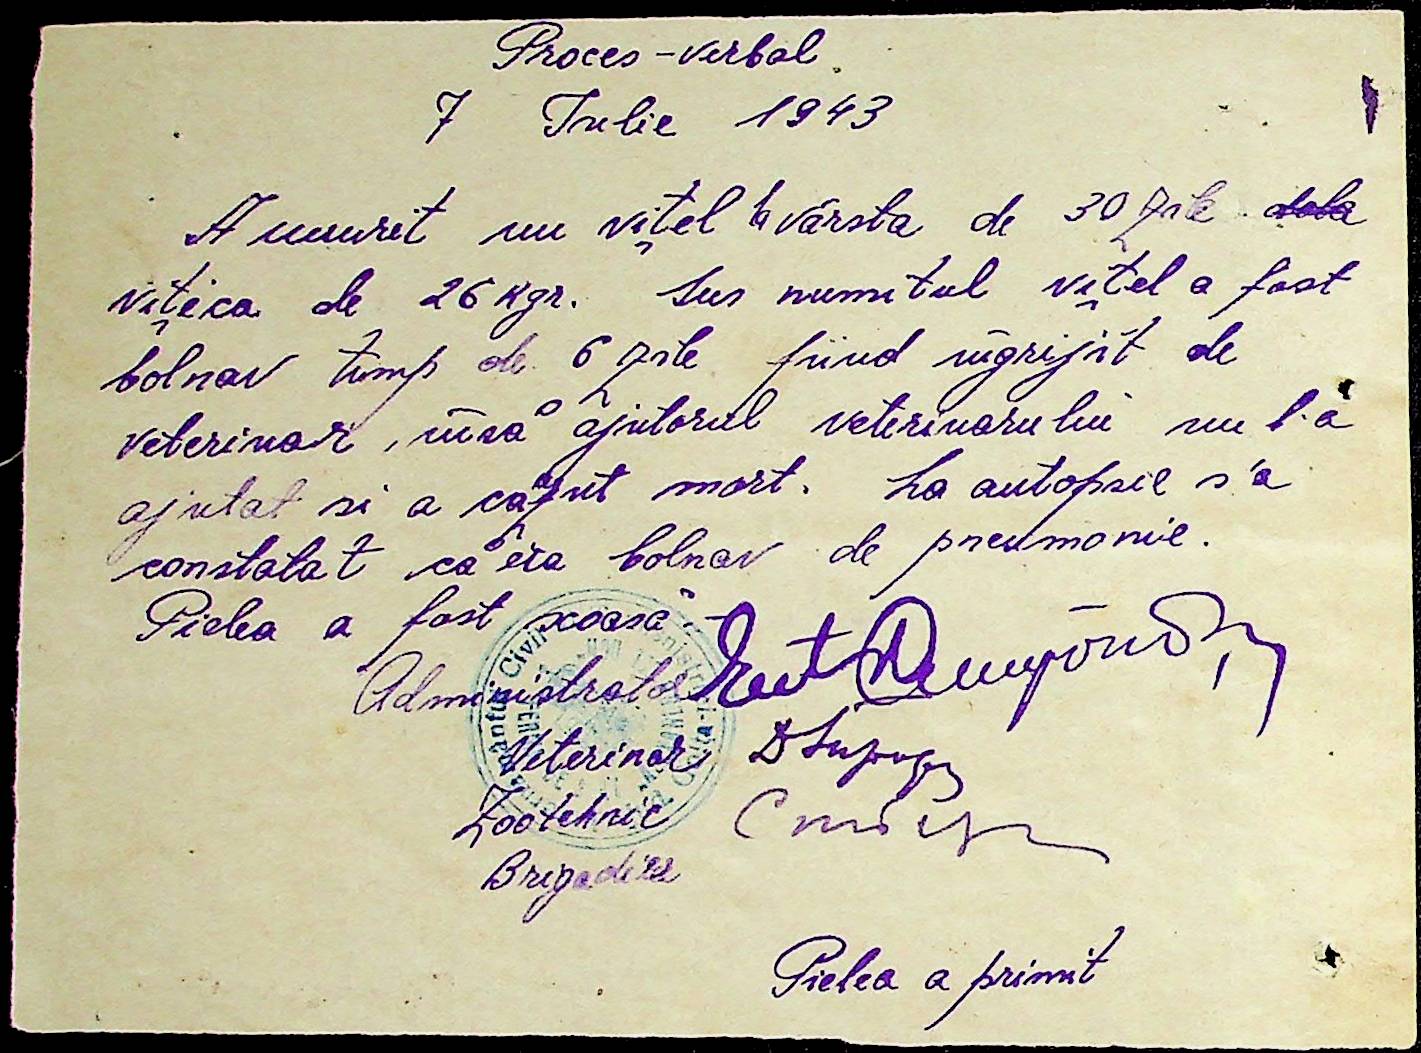 Proces-verbal
7 Iulie 1943
A murit un vițel la vârsta de 30 zile
vițica de 26 Kgr. Sus numitul vițel a fost
bolnav timp de 6 zile fiind îngrijit de
veterinar, însă ajutorul veterinarului nu l-a
ajutat si a căzut mort. La autopsie s'a
constatat că era bolnav de pneumonie.
Pielea a fost scoasă.
Administrator
Veterinar
Zootehnic
Brigadier
Pielea a primit